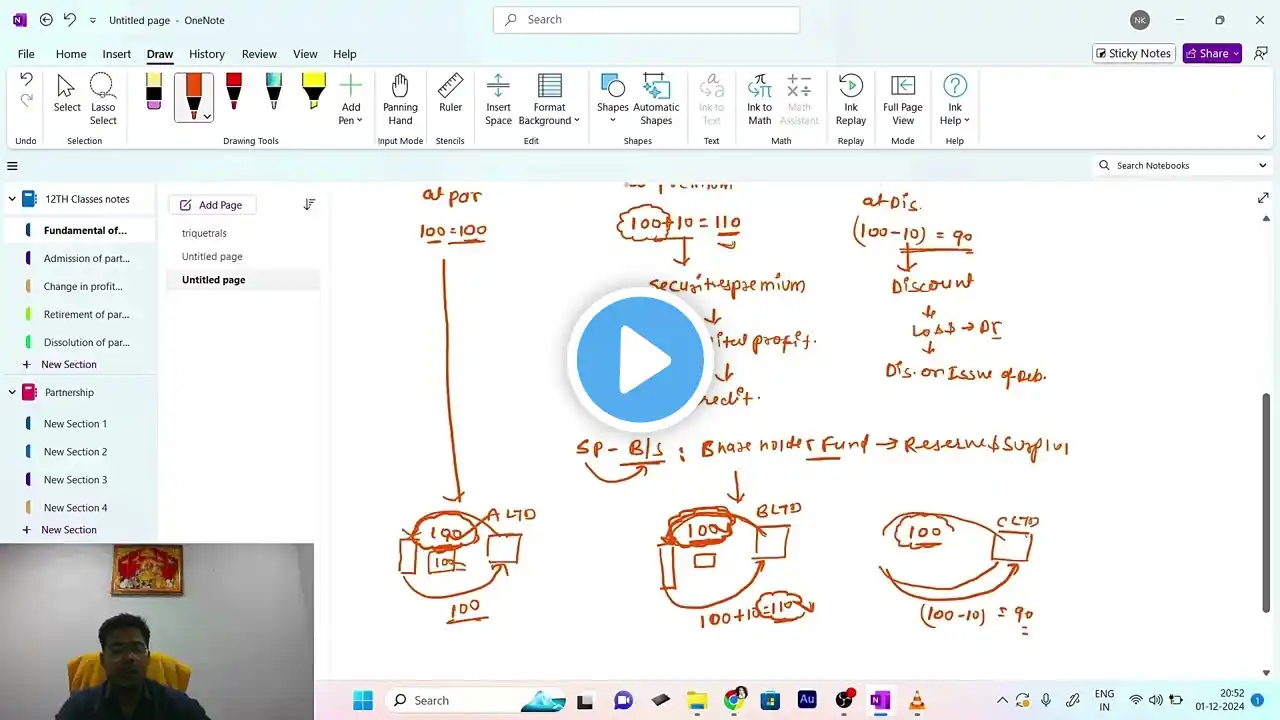 Untitled page - OneNote
Search
NK
File Home Insert Draw History Review View Help
Sticky Notes
Share
Undo
Select
Lasso Select
Selection
Drawing Tools
Add Pen
Panning Hand
Input Mode
Ruler
Stencils
Insert Space
Format Background
Edit
Shapes
Automatic Shapes
Shapes
Ink to Text
Text
Ink to Math
Math Assistant
Math
Ink Replay
Replay
Full Page View
Mode
Ink Help
Help
Search Notebooks
12TH Classes notes
Fundamental of...
Admission of part...
Change in profit...
Retirement of par...
Dissolution of par...
New Section
Partnership
New Section 1
New Section 2
New Section 3
New Section 4
New Section
Add Page
triquetrals
Untitled page
Untitled page
at par
100 = 100
100+10 = 110
securitiespremium
profit.
at Dis.
(100-10) = 90
Discount
Loss → Dr
Dis. on Issue of Deb.
SP - B/S : Shareholder Fund → Reserve & Surplus
A LTD
100
100
100
B LTD
100
100+10=110
C LTD
100
(100-10) = 90
Search
Au
ENG
IN
20:52
01-12-2024
1